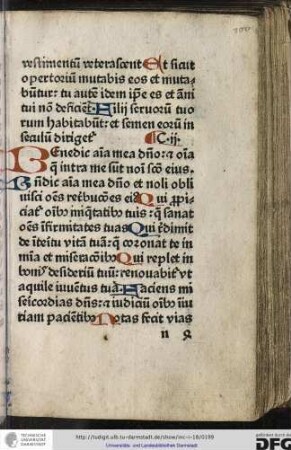 vestimentū veterascent Et sicut
opertoriū mutabis eos et muta-
būtur: tu autē idem ipe es et āni
tui nō deficiēt. Filij seruorū tuo
rum habitabūt: et semen eorū in
seculū diriget C.ij.
Benedic aīa mea dn̄o: ⁊ oīa
q̄ intra me sūt noī scō eius.
Bn̄dic aīa mea dn̄o et noli obli
uisci oēs retbucōes eiꝰ Qui ꝓpi
ciat̉ oībꝰ īniq̄tatibꝰ tuis: q̄ sanat
oēs īfirmitates tuas Qui redimit
de īteritu vitā tuā: q̄ coronat te in
mīa et miseracōibꝰ Qui replet in
bonis desideriū tuū: renouabit̉ vt
aquile iuuētus tuā. Faciens mi
sericordias dn̄s: ⁊ iudiciū oībꝰ īiu
riam pacientibꝰ Notas fecit vias
n
TECHNISCHE
UNIVERSITÄT
DARMSTADT
http://tudigit.ulb.tu-darmstadt.de/show/inc-i-18/0199
Universitäts- und Landesbibliothek Darmstadt
gefördert durch die
DFG